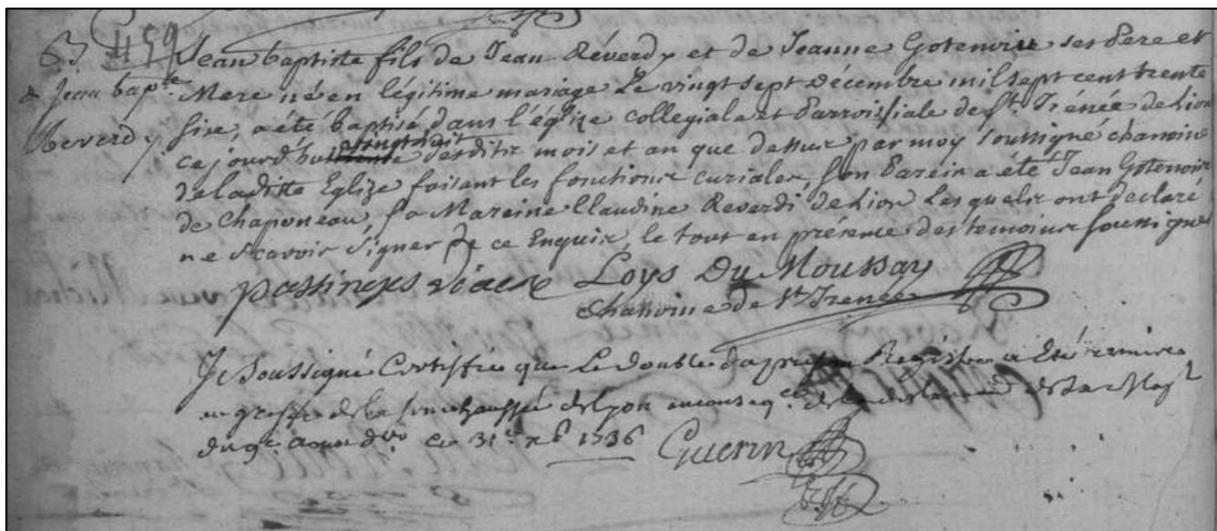 B 459 Jean baptiste fils de Jean Réverdy et de Jeanne Gotenoire ses Pere et
de Jean bap.te Mere né en légitime mariage Le vingt sept Décembre mil sept cent trente
Reverdy sixe, a été baptisé dans l'église collegiale et Parroissiale de St. Irénée de Lion
vingt huit
ce jourd'huy desditte mois et an que dessus par moy soussigné chanoine
de laditte Eglize faisant les fonctions curiales, son Parein a été Jean Gotenoire
de Chaponeau, sa Mareine Claudine Reverdi de Lion Lesquels ont declaré
ne scavoir signer de ce Enquis, le tout en présence des temoins soussignés
Loys Du Moussay
Chanoine de St. Irenée
Je Soussigné Certiffie que Le double du present Registre a Eté remis
au greffe de la senechaussée de Lyon en conseq.ce de la declaration de Sa Maj.té
du 9.e ce 31.e xb 1736 Guerin